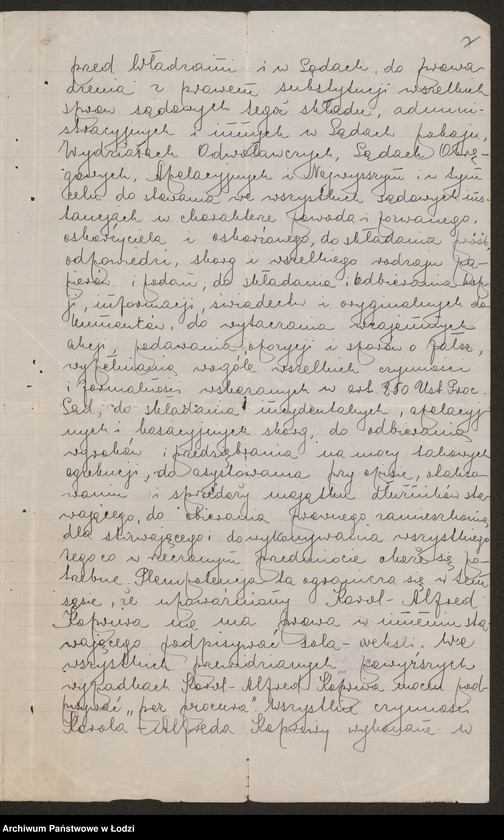 2
pred Władzami i w Sądach, do prowa-
dzenia z prawem substytucji wszelkich
spraw sądowych tegoż składu, admini-
stracyjnych i innych w Sądach pokoju,
Wydziałach Odwoławczych, Sądach Okrę-
gowych, Apelacyjnych i Najwyższym i w tym
celu do stawania we wszystkich sądowych ins-
tancjach w charakterze powoda i pozwanego,
oskarżyciela i oskarżonego, do składania próśb,
odpowiedzi, skarg i wszelkiego rodzaju pa-
pierów i podań, do składania i odbierania kop-
ji, informacji, świadectw i oryginalnych do-
kumentów, do wytaczania wzajemnych
akcji, podawania opozycji i sporów o fałsz,
wypełniania wogóle wszelkich czynności
i formalności wskazanych w art. 250 Ust. Proc.
Sąd., do składania incydentalnych, apelacyj-
nych i kasacyjnych skarg, do odbierania
wyroków i przedsiębrania na mocy takowych
egzekucji, do asystowania przy opisie, otakso-
waniu i sprzedaży majątku dłużników sta-
wającego, do obierania prawnego zamieszkania
dla stawającego i do wykonywania wszystkiego
tego co w rzeczonym przedmiocie okaże się po-
trzebne. Plenipotencja ta ogranicza się w tem
sęsie, że upoważniony Karol-Alfred
Koprwa nie ma prawa w imieniu sta-
wającego podpisywać sola-weksli. We
wszystkich przewidzianych powyższych
wypadkach Karol-Alfred Koprwa mocen pod-
pisywać „per procura”. Wszystkie czynności
Karola-Alfreda Koprwy wykonane w
Archiwum Państwowe w Łodzi